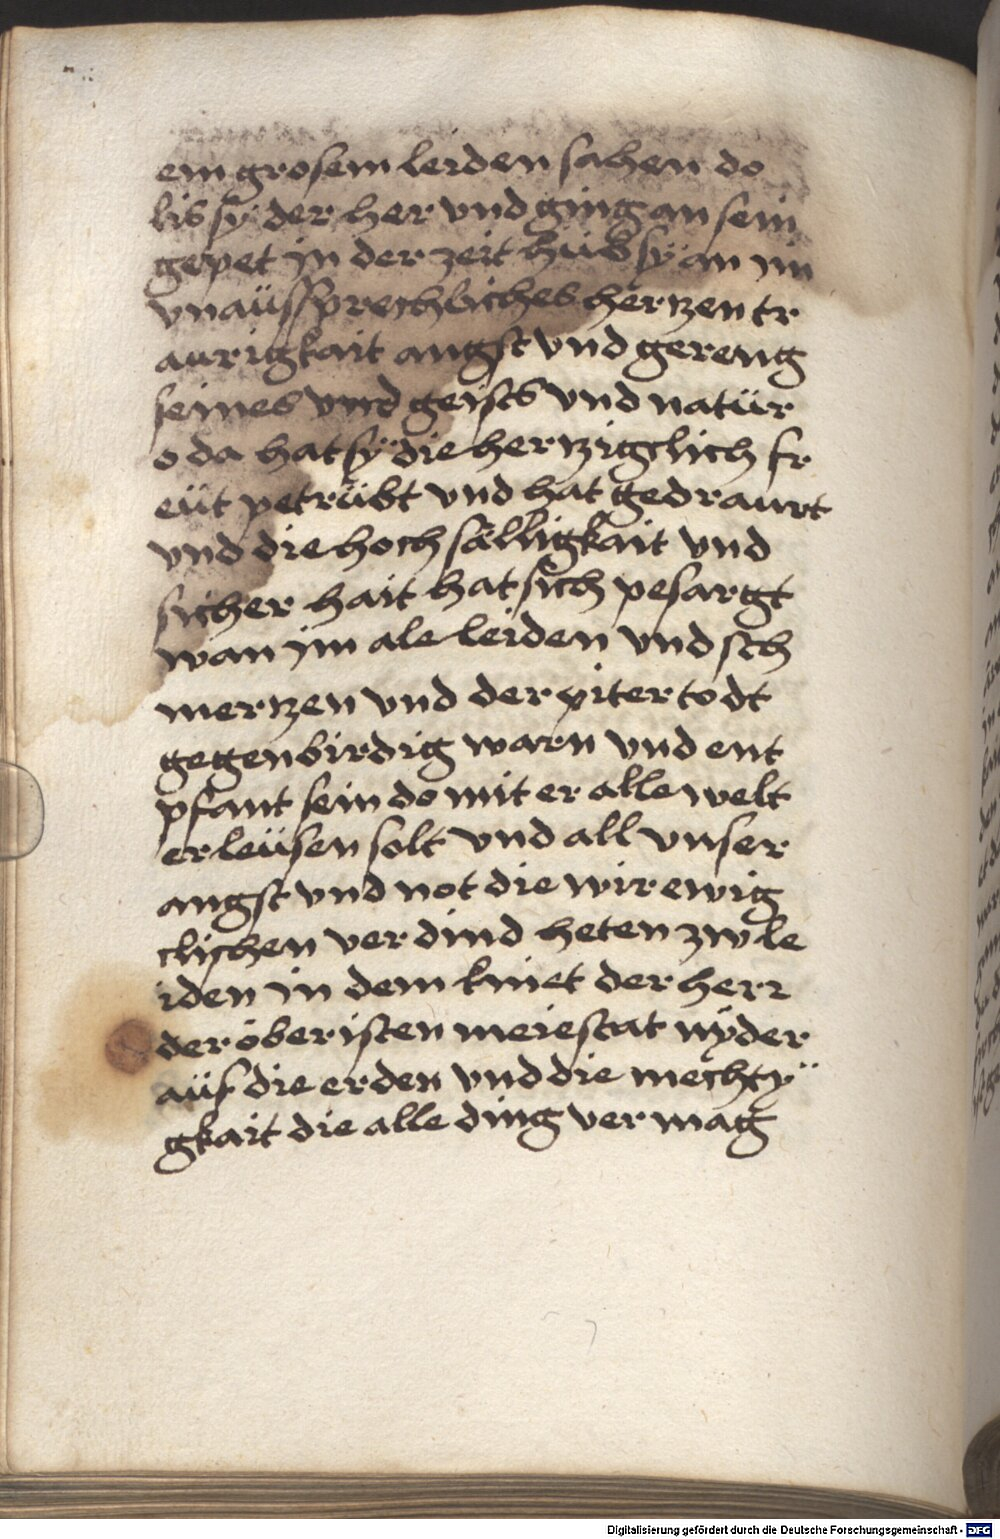 ein grosem leiden sahen do
lis sy der her vnd ging an sein
gepet in der zeit hub sÿ an im
vnaüssprechliches hertzen tr
aurigkait angst vnd gereng
seines vnd geists vnd natür
o da hat sÿ die hertziglich fr
eüt petrübt vnd hat gedraurt
vnd die hoch sälligkait vnd
sicher hait hat sich pesargt
wan im ale leiden vnd sch
mertzen vnd der piter todt
gegenbirdig warn vnd ent
pfant sein do mit er alle welt
erleüsen solt vnd all vnser
angst vnd not die wir ewig
clichen ver dind heten zw le
iden in dem kniet der herr
der öberisten meiestat nÿder
aüf die erden vnd die mechtÿ
gkait die alle ding vermag
Digitalisierung gefördert durch die Deutsche Forschungsgemeinschaft - DFG